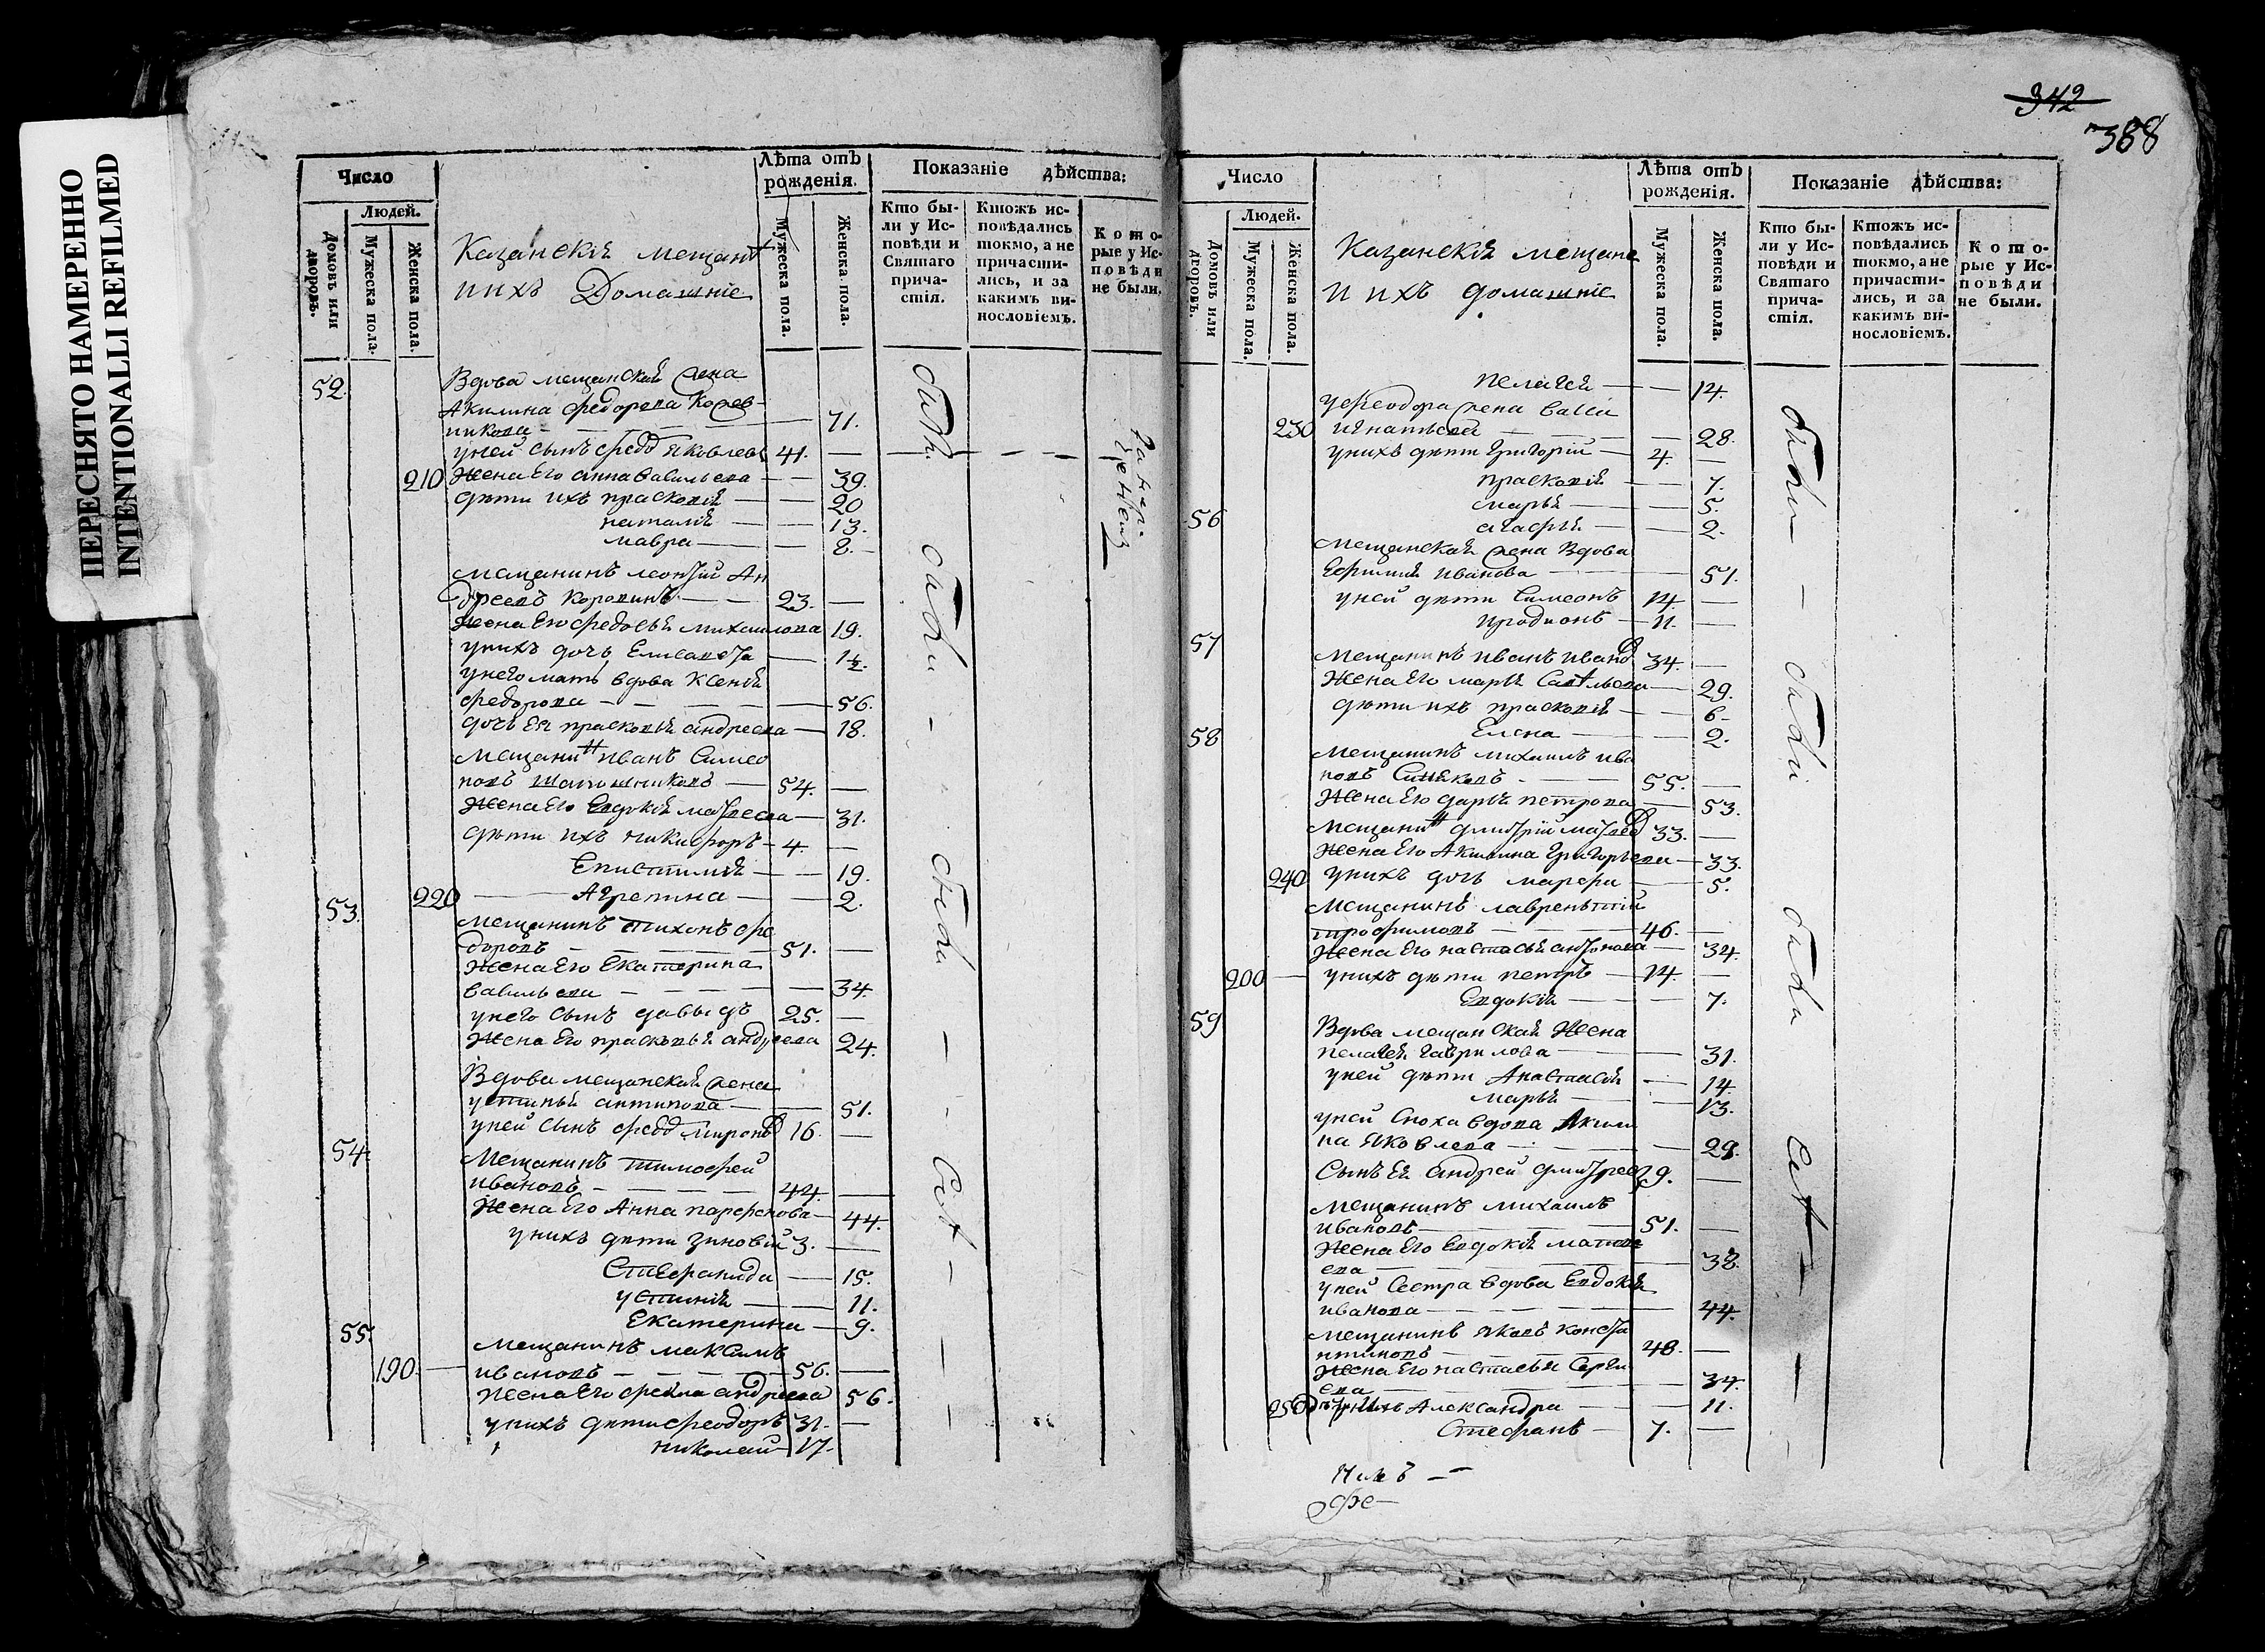 ПЕРЕСНЯТО НАМЕРЕННО
INTENTIONALLI REFILMED
Число
Людей.
Домовъ или дворовъ.
Мужеска пола.
Женска пола.
Казанскія мещане
и ихъ Домашніе
Лѣта отъ рожденія.
Мужеска пола.
Женска пола.
Показаніе дѣйства:
Кто бы-
ли у Ис-
повѣди и
Святаго
прича-
стія.
Ктожъ ис-
повѣдались
токмо, а не
причасти-
лись, и за
какимъ ви-
нословіемъ.
Кото-
рые у Ис-
повѣди
не были.
52. Вдова мещанская жена
Акилина Федорова
никова — 71.
у ней сынъ Федоръ Яковлевъ 41. —
210 Жена Его анна васильева — 39.
дѣти ихъ прасковія — 20
наталія — 13.
мавра — 8.
мещанинъ леонтій Ан
дреевъ — 23. —
Жена Его Федосья михаилова 19.
у нихъ дочь Елисавета — 1½.
у него мать вдова Ксенія
Федорова — 56.
дочь Ея прасковья андреева — 18.
мещанинъ иванъ Симео
новъ — 54. —
Жена Его Евдокія матвеева — 31.
дѣти ихъ никифоръ — 4. —
Епистимія — 19.
220 — Агрепина — 2.
53. мещанинъ тихонъ Фе
доровъ — 51. —
Жена Его Екатерина
васильева — 34.
у него сынъ давыдъ 25. —
Жена Его прасковья андреева 24.
Вдова мещанская жена
устинья антипова — 51.
у ней сынъ Федоръ мироновъ 16. —
54. Мещанинъ тимофей
ивановъ — 44. —
Жена Его Анна парфенова — 44.
у нихъ дѣти зиновій 3. —
Стефанида — 15.
устинія — 11.
Екатерина — 9.
55. мещанинъ максимъ
190. — ивановъ — 56. —
Жена Его Фекла андреева 56.
у нихъ дѣти феодоръ 31. —
николай — 17.
были — были — были —
342
388
Число
Людей.
Домовъ или дворовъ.
Мужеска пола.
Женска пола.
Казанскія мещане
и ихъ домашніе
Лѣта отъ рожденія.
Мужеска пола.
Женска пола.
Показаніе дѣйства:
Кто бы-
ли у Ис-
повѣди и
Святаго
прича-
стія.
Ктожъ ис-
повѣдались
токмо, а не
причасти-
лись, и за
какимъ ви-
нословіемъ.
Кото-
рые у Ис-
повѣди
не были.
пелагея — 14.
у Феодора жена
230 игнатьева — 28.
у нихъ дѣти григорій — 4. —
прасковія — 7.
марья — 5.
56 агафья — 2.
мещанская жена вдова
Ефимия иванова — 51.
у ней дѣти Симеонъ 14. —
иродионъ — 11. —
57 мещанинъ иванъ ивановъ 34. —
Жена Его марья Савельева — 29.
дѣти ихъ прасковія — 6.
58 Елена — 2.
мещанинъ михаилъ ива
новъ — 55. —
Жена Его дарья петрова — 53.
мещанинъ дмитрій матвеевъ 33. —
Жена Его Акилина григорьева — 33.
240 у нихъ дочь марфа — 5.
Мещанинъ лаврентій
трофимовъ — 46. —
Жена Его настасья антонова — 34.
200 — у нихъ дѣти петръ — 14. —
Евдокія — 7.
59 Вдова мещанская Жена
пелагея гаврилова — 31.
у ней дѣти Анастасія — 14.
марья — 13.
у ней сноха вдова Акили
на Яковлева — 29.
Сынъ Ея андрей дмитреевъ 9. —
мещанинъ михаилъ
ивановъ — 51. —
Жена Его Евдокія матве
ева — 38.
у ней сестра вдова Евдокія
иванова — 44.
мещанинъ яковъ конста
нтиновъ — 48. —
Жена Его настасья Серге
ева — 34.
250 Александра — 11.
Стефанъ — 7. —
были — были — были